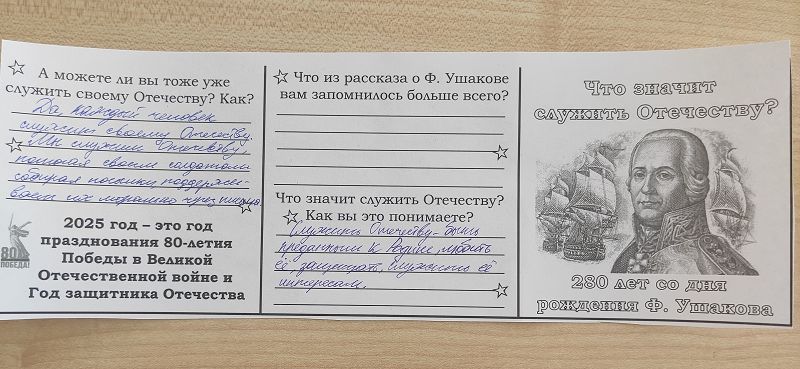 А можете ли вы тоже уже
служить своему Отечеству? Как?
Да, каждый человек
служит своему Отечеству.
Мы служим Отечеству,
помогая своим солдатам
собирая посылки поддержи-
ваем их морально через письма
2025 год – это год
празднования 80-летия
Победы в Великой
Отечественной войне и
Год защитника Отечества
80
ПОБЕДА!
Что из рассказа о Ф. Ушакове
вам запомнилось больше всего?
Что значит служить Отечеству?
Как вы это понимаете?
Служить Отечеству - быть
преданным к Родине, любить
её, защищать, служить её
интересам.
Что значит
служить Отечеству?
280 лет со дня
рождения Ф. Ушакова